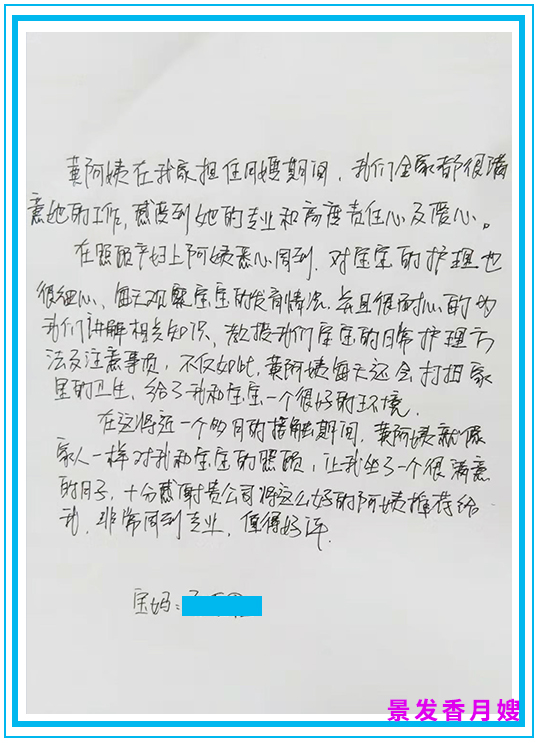 黄阿姨在我家担任月嫂期间，我们全家都很满
意她的工作，感受到她的专业和高度责任心及爱心。
在照顾产妇上阿姨悉心周到，对宝宝的护理也
很细心，每天观察宝宝的发育情况，并且很耐心的为
我们讲解相关知识，教授我们宝宝的日常护理方
法及注意事项，不仅如此，黄阿姨每天还会打扫家
里的卫生，给了我和宝宝一个很好的环境．
在这将近一个多月的接触期间，黄阿姨就像
家人一样对我和宝宝的照顾，让我坐了一个很满意
的月子，十分感谢贵公司将这么好的阿姨推荐给
我，非常周到专业，值得好评．
宝妈：
景发香月嫂